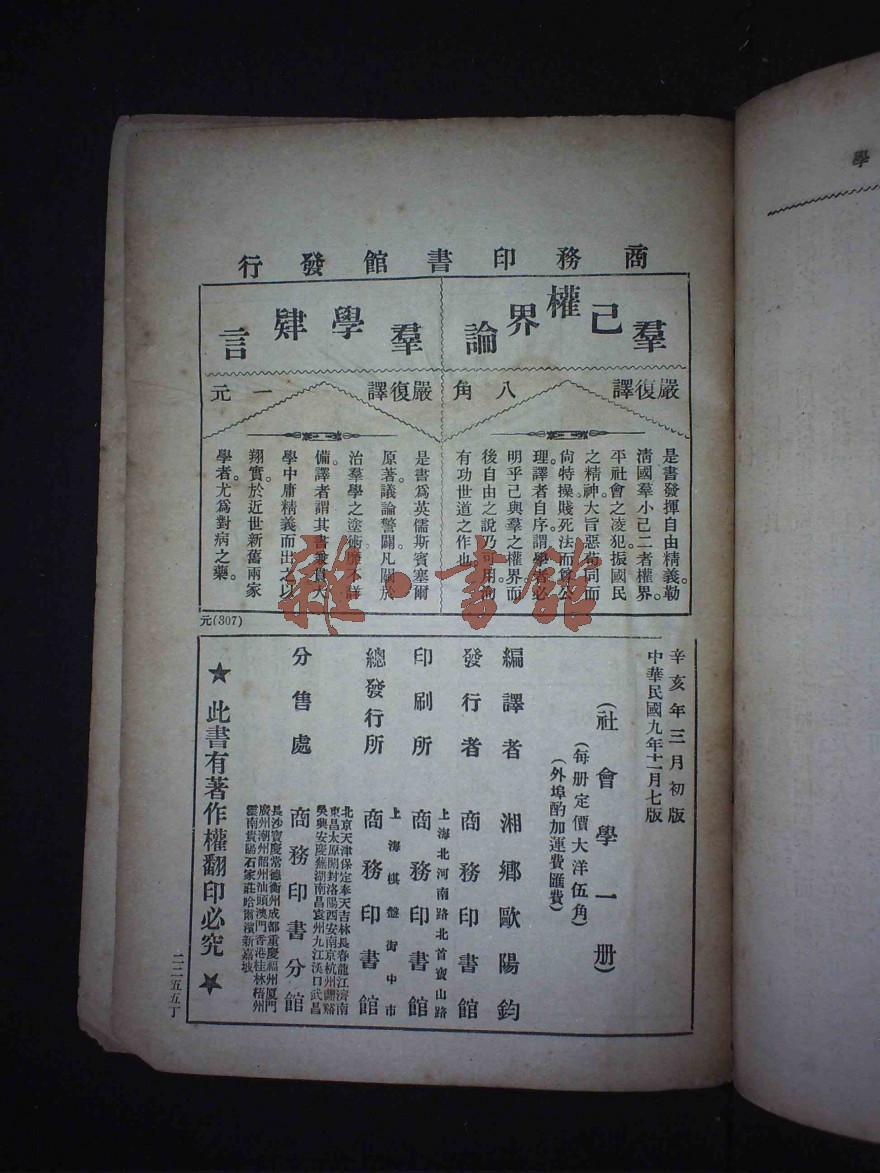 商務印書館發行
羣己權界論
嚴復譯 八角
是書發揮自由精義。勒
清國羣小己二者權界。
平社會之凌犯振國民
之精神。大旨惡苟同而
尚特操賤死法而算公
理。譯者自序。謂學者必
明乎己與羣之權界。而
後自由之說乃可用。洵
有功世道之作也。
羣學肄言
嚴復譯 一元
是書爲英儒斯賓塞爾
原著。議論警闢。凡關於
治羣學之塗術。靡不詳
備。譯者謂其書兼貫大
學中庸精義而出之以
翔實。於近世新舊兩家
學者。尤爲對病之藥。
元(307)
辛亥年三月初版
中華民國九年十一月七版
(社會學一册)
(每册定價大洋伍角)
(外埠酌加運費匯費)
編譯者 湘鄉歐陽鈞
發行者 商務印書館
上海北河南路北首寶山路
印刷所 商務印書館
上海棋盤街中市
總發行所 商務印書館
分售處 商務印書分館
北京天津保定奉天吉林長春龍江濟南
東昌太原開封洛陽西安南京杭州蘭谿
吳興安慶蕪湖南昌袁州九江漢口武昌
長沙寶慶常德衡州成都重慶福州廈門
廣州潮州韶州汕頭澳門香港桂林梧州
雲南貴陽石家莊哈爾濱新嘉坡
★此書有著作權翻印必究★
二二五五丁
學
雜·書館